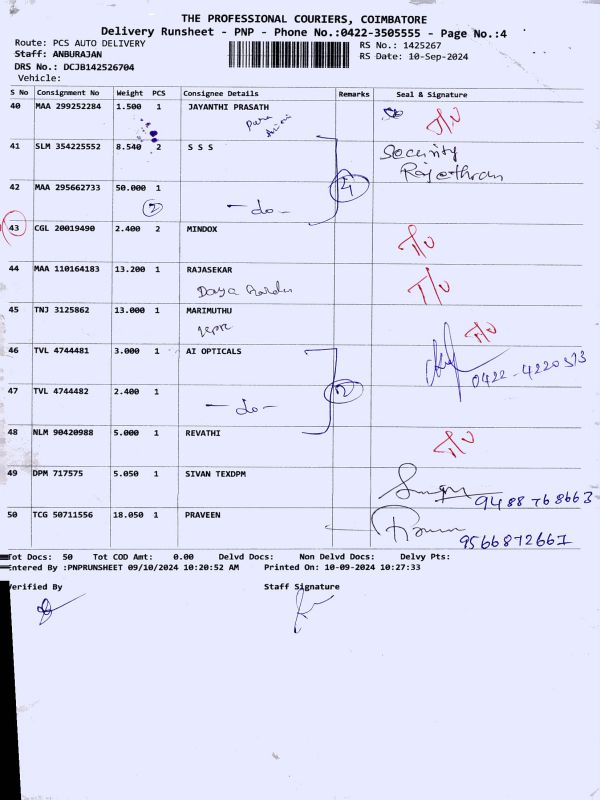 THE PROFESSIONAL COURIERS, COIMBATORE
Delivery Runsheet - PNP - Phone No.:0422-3505555 - Page No.:4
Route: PCS AUTO DELIVERY
Staff: ANBURAJAN
DRS No.: DCJB142526704
Vehicle:
RS No.: 1425267
RS Date: 10-Sep-2024
S No Consignment No Weight PCS Consignee Details Remarks Seal & Signature
40 MAA 299252284 1.500 1 JAYANTHI PRASATH T/U
41 SLM 354225552 8.540 2 S S S Security
42 MAA 295662733 50.000 1
2 -do- 4
43 CGL 20019490 2.400 2 MINDOX T/U
44 MAA 110164183 13.200 1 RAJASEKAR T/U
Daya
45 TNJ 3125862 13.000 1 MARIMUTHU T/U
46 TVL 4744481 3.000 1 AI OPTICALS
0422-4220313
47 TVL 4744482 2.400 1
-do- 2
48 NLM 90420988 5.000 1 REVATHI T/U
49 DPM 717575 5.050 1 SIVAN TEXDPM
9488768663
50 TCG 50711556 18.050 1 PRAVEEN
9566872661
Tot Docs: 50 Tot COD Amt: 0.00 Delvd Docs: Non Delvd Docs: Delvy Pts:
Entered By :PNPRUNSHEET 09/10/2024 10:20:52 AM Printed On: 10-09-2024 10:27:33
Verified By Staff Signature